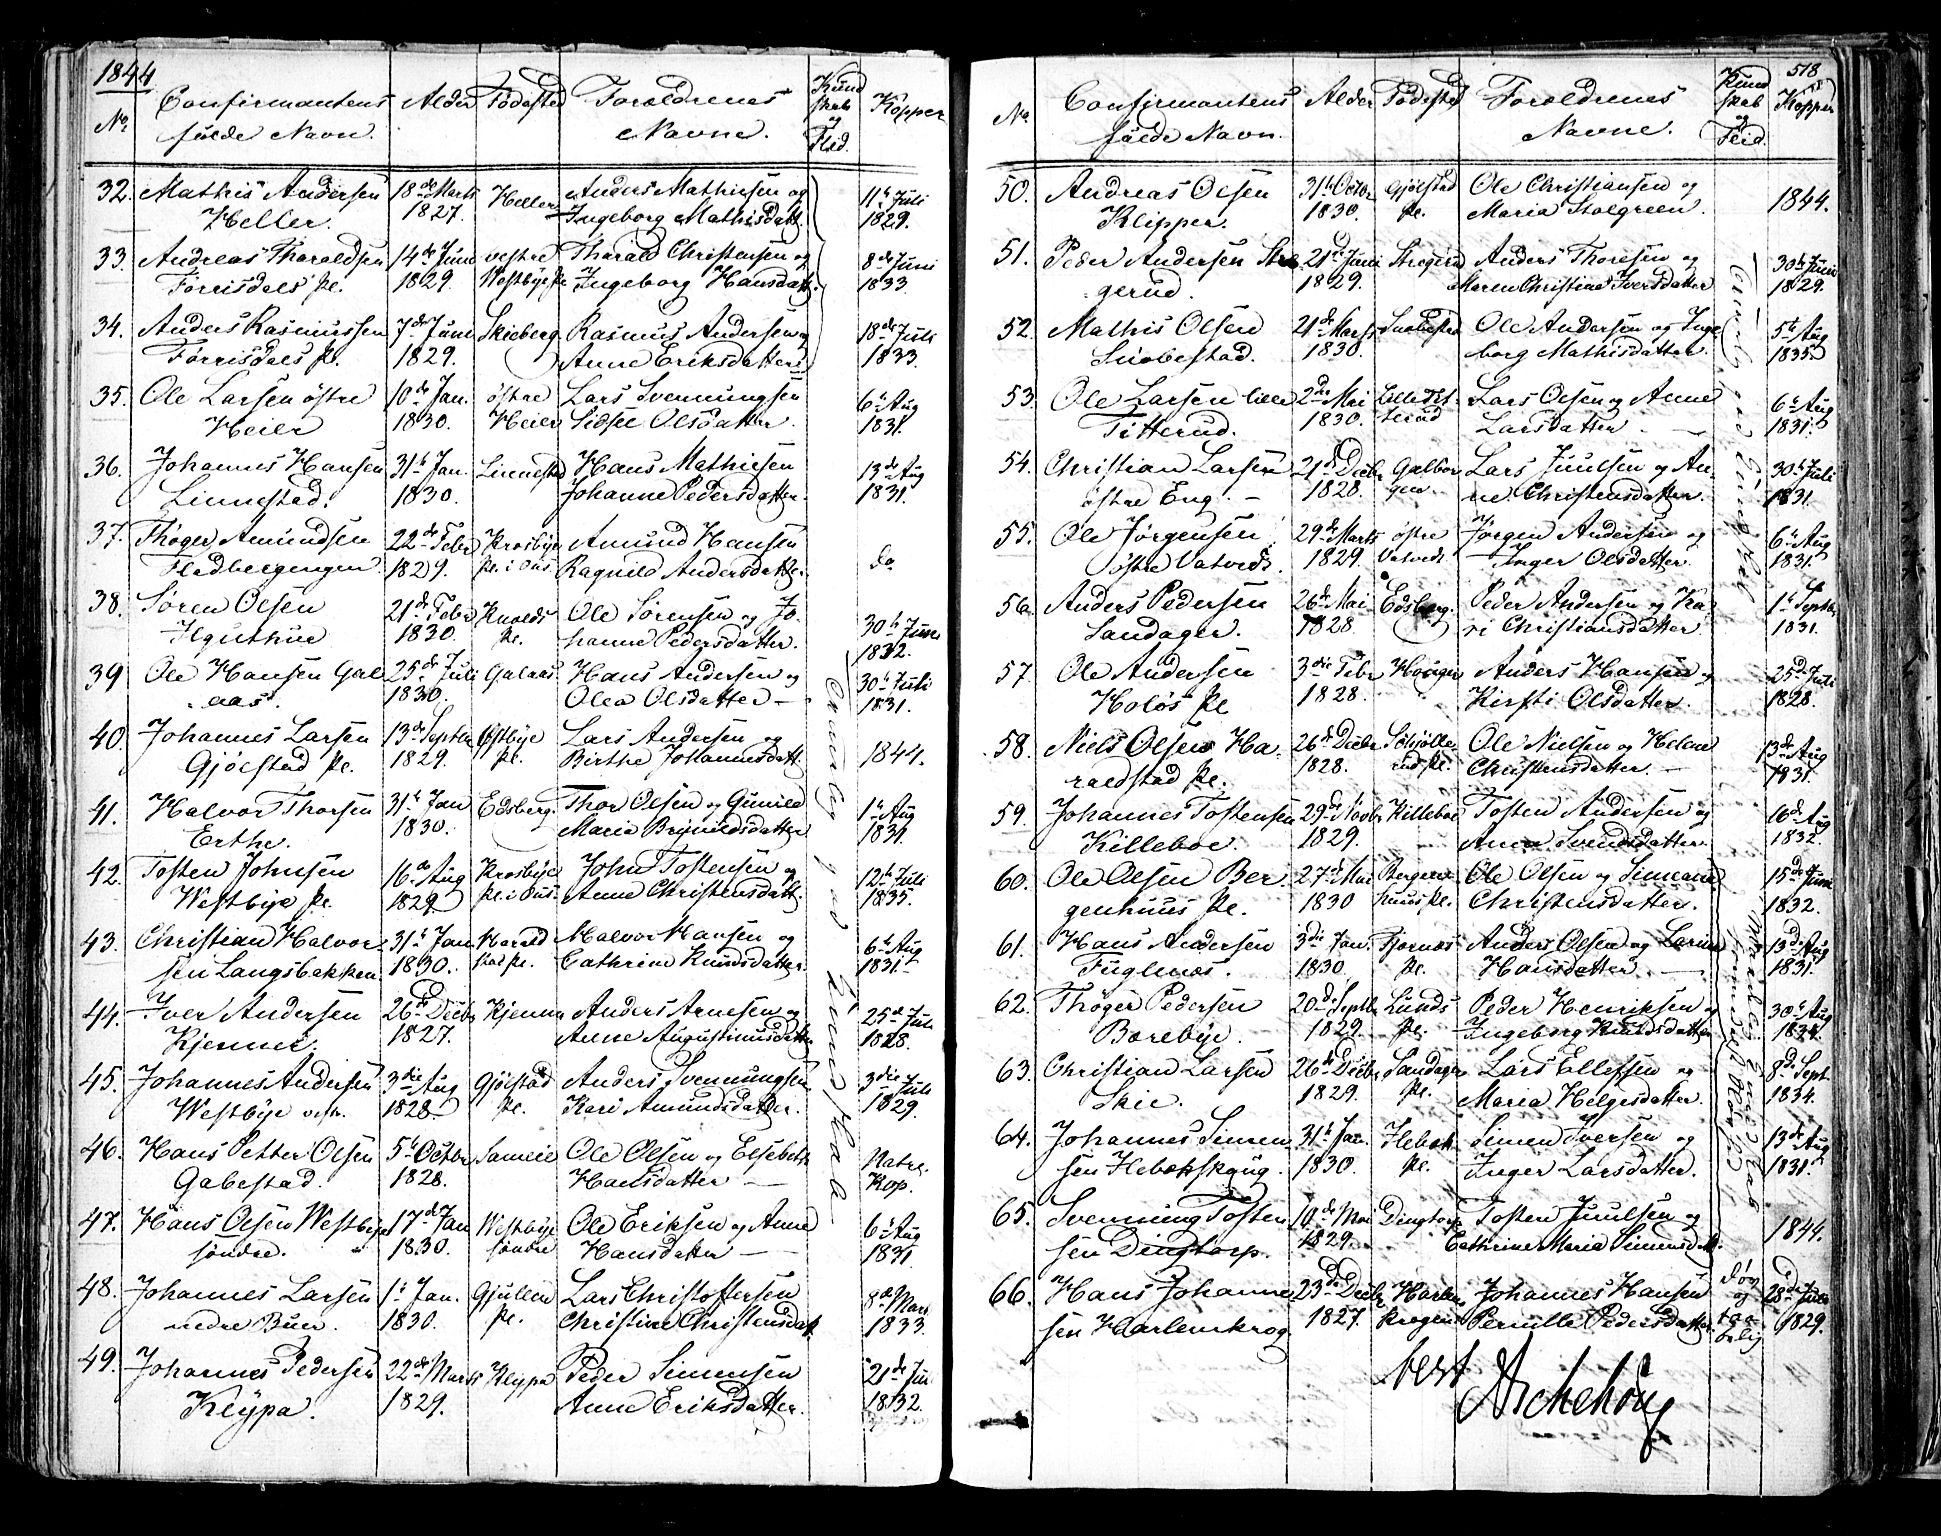 1844
No. Confirmantens fulde Navn. Alder Fødested Forældrenes Navne. Kundskab og Flid. Kopper
32. Mathis Andersen 18de Marts Heller Anders Mathiesen og 11te Juli
Heller. 1827. Ingeborg Mathisdatt. 1829.
33. Andreas Tharaldsen 14de Juni vestre Tharald Christensen og 8de Juni
Torrisdals Pl. 1829. Westbye Pl. Ingeborg Hansdatt. 1833.
34. Anders Rasmussen 7de Juni Skieberg Rasmus Andersen og 18de Juli
Torrisdals Pl. 1829. Anne Eriksdatter 1833.
35. Ole Larsen østre 10de Jan. østre Lars Svenningsen 6te Aug
Heier 1830. Heier Sidsel Olsdatter. 1831.
36. Johannes Hansen 31te Jan. Linnestad Hans Mathiesen 13de Aug
Linnestad. 1830. Johanne Pedersdatter. 1831.
37. Thøger Amundsen 22de Febr Krosbye Amund Hansen do
Fladbergengen 1829. Pl. i Ous. Ragnild Andersdatter.
38. Søren Olsen 21de Febr Knolds Ole Sørensen og Jo- 30te Juni
1830. Pl. hanne Pedersdatter. 1832.
39 Ole Hansen Gal 25de Juli Galaas Hans Andersen og 30te Juli
aas. 1830. Olea Olsdatter 1831.
40. Johannes Larsen 13de Septbr Østbye Lars Andersen og 1844.
Gjølstad Pl. 1829. Pl. Birthe Johannesdatt.
41. Halvor Thorsen 31te Jan Edsberg. Thor Olsen og Gunild 1te Aug
Erthe. 1830. Maria Brynildsdatter 1831.
42. Tosten Johnsen 16de Aug Krosbye John Tostensen og 12te Juli
Westbye Pl. 1829 Pl. i Ous. Anne Christensdatt. 1835.
43. Christian Halvor- 31te Jan Harald Halvor Hansen og 6te Aug
sen Langsbakken 1830. stad Pl. Cathrine Knudsdatter. 1831.
44. Iver Andersen 26de Decbr Kjenne Anders Arnesen og 25de Juli
Kjenne. 1827. Anne Augustinusdatter 1828.
45. Johannes Andersen 3die Aug Gjølstad Anders Svenningsen 3die Juli
Westbye 1828 Pl. Kari Amundsdatter. 1829.
46. Hans Petter Olsen 5te Octbr Sameie Ole Olsen og Elsebeth Natrl.
Gabestad. 1828. Hansdatter Kop.
47. Hans Olsen Westbye 17de Jan Westbye Ole Eriksen og Anne 6te Aug
søndre. 1830. søndre Hansdatter 1831.
48. Johannes Larsen 1te Jan. Gjullem Lars Christoffersen 8de Mars
nedre Buer. 1830. Pl. Christine Christensdatt 1833.
49. Johannes Pedersen 22de Marts Klypa Peder Simensen 21de Jun
Klypa. 1829. Anne Eriksdatter. 1832.
518
No. Confirmantens fulde Navn. Alder Fødested Forældrenes Navne. Kundskab og Fleid. Kopper
50. Andreas Olsen 31te Octbr Gjølstad Ole Christiansen og 1844.
Klipper. 1830. Pl. Maria Stolgreen.
51. Peder Andersen Stre 21de Juni Stregerud Anders Thoresen og 30te Juni
gerud. 1829. Maren Christine Iversdatter 1829.
52. Mathis Olsen 21de Marts Ole Andersen og Inge 5te Aug
1830. borg Mathisdatter. 1835.
53. Ole Larsen lille 2den Mai Lille Tit- Lars Olsen og Anne 6te Aug
Titterud. 1830. terud Larsdatter. 1831.
54. Christian Larsen 21de Decbr Galbor Lars Juulsen og An- 30te Juli
østre Eng. 1828. gen. ne Christensdatter. 1831.
55. Ole Jørgensen 29de Marts østre Jørgen Andersen og 6te Aug
østre Vatvedt. 1829. Vatvedt. Inger Olsdatter. 1831.
56. Anders Pedersen 26de Mai Edsberg. Peder Andersen og Ka- 1te Septbr
Sandager. 1828 ri Christiansdatter. 1831.
57. Ole Andersen 3die Febr Anders Hansen og 25de Juli
Holøs Pl 1828. Kirsti Olsdatter. 1828.
58. Niels Olsen Ha- 26de Decbr Ole Nielsen og Helene 13de Aug
raldstad Pl. 1828. rud Pl. Christensdatter. 1831.
59. Johannes Tostensen 29de Novbr Killeboe Tosten Andersen og 16de Aug
Killeboe. 1829. Anne Svendsdatter. 1832.
60. Ole Olsen Ber- 27de Mai Bergen- Ole Olsen og Simeane 15de Juni
genhuus Pl. 1830 huus Pl. Christensdatter. 1832.
61. Hans Andersen 3die Jan. Bjørnæs Anders Olsen og Larine 13de Aug
Fuglenæs. 1830. Pl. Hansdatter. 1831.
62. Thøger Pedersen 20de Septbr Lunds Peder Henriksen og 30te Aug
Borebye. 1829. Pl. Ingeborg Knudsdatter 1834.
63. Christian Larsen 26de Decbr Sandager Lars Ellefsen og 8de Sept.
Skie. 1829. Pl. Maria Helgesdatter. 1834.
64. Johannes Simen- 31te Jan. Hebæk Simen Iversen og 13de Aug
sen Hebækskaug. 1830. Pl. Inger Larsdatter. 1831.
65. Svenning Tosten- 10de Mai Dingtorp Tosten Juulsen og 1844.
sen Dingtorp. 1829. Cathrine Maria Simensdatt.
66. Hans Johanne- 23de Decbr Harlem- Johannes Hansen døv og 28de Juli
sen Harlemkrog 1827. krogen Pernille Pedersdatter 1829.
test
Aschehoug